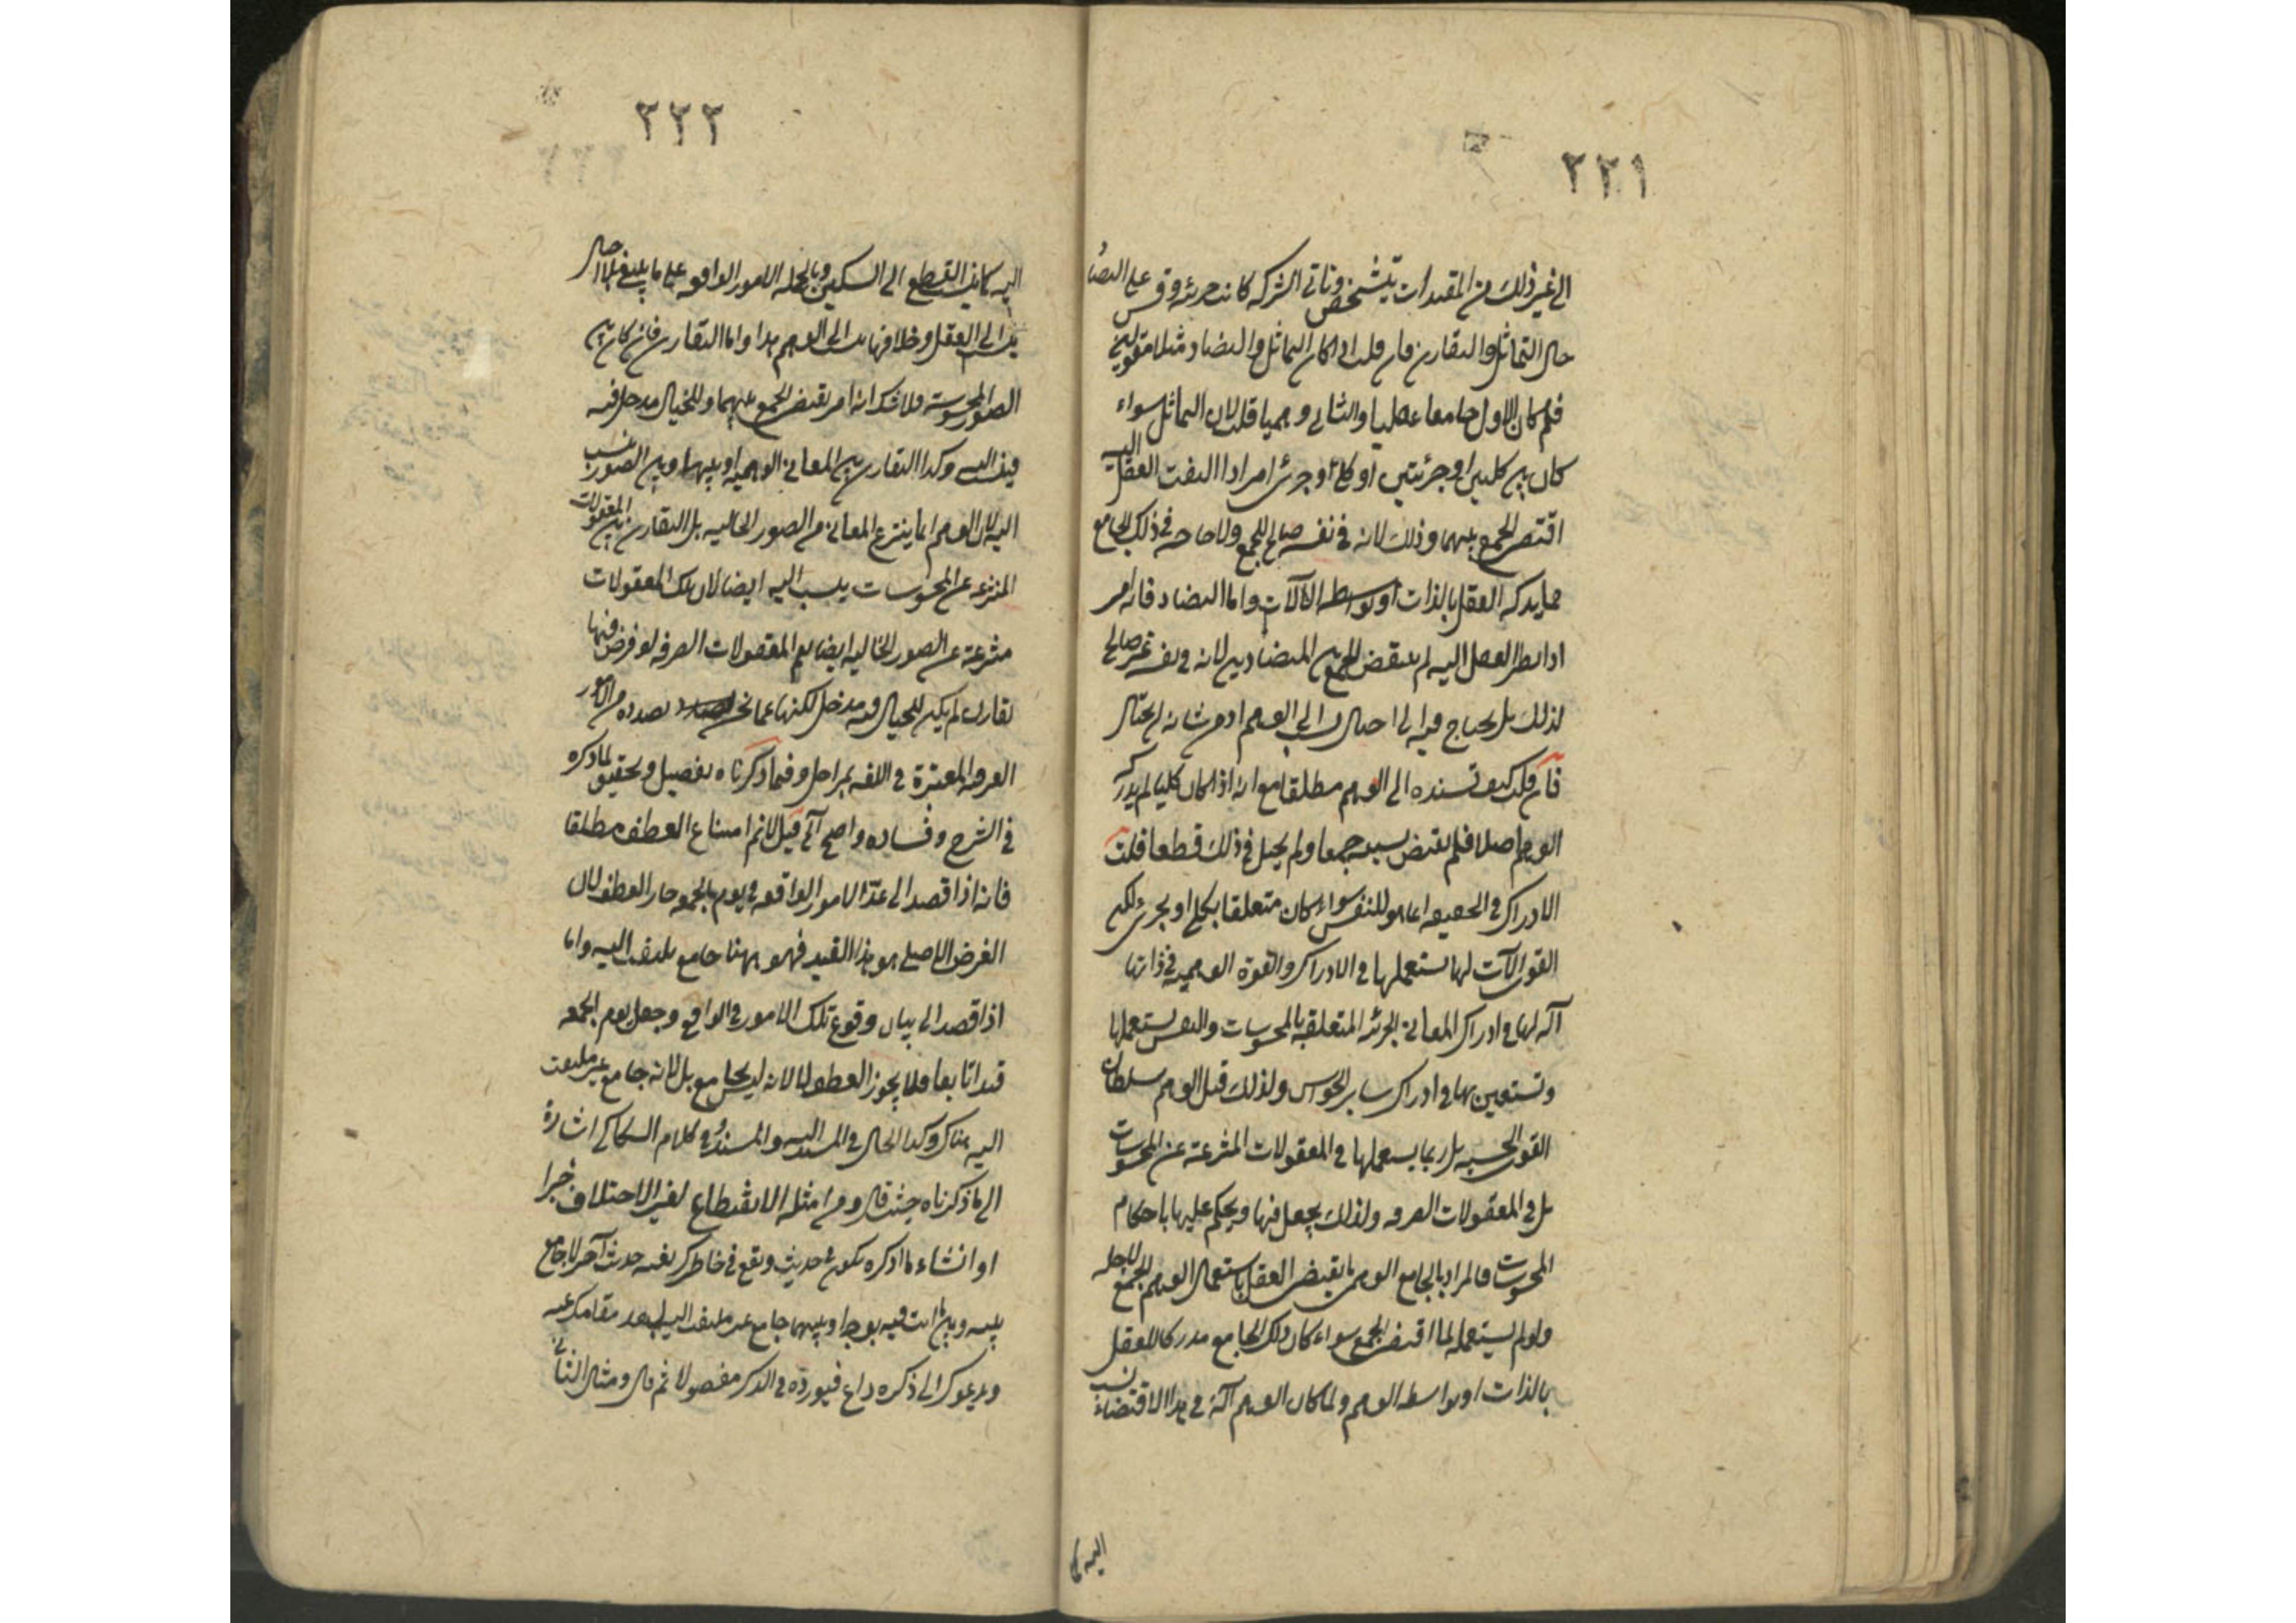 ٢٢١
الى غير ذلك من المقيدات تتشخص وتاتى الشركه كانت جزئيه وقس على التضاد
حال التماثل والتقارن فان قلت اذا كان التماثل والتضاد مثلا مقولين
فلم كان الاول جامعا عقليا والثانى وهميا قلت لان التماثل سواء
كان بين كليين او جزئيتين او كلى وجزئى امر اذا التفت العقل اليه
اقتضى الجمع بينهما وذلك لانه فى نفسه صالح للجمع ولا حاجه فى ذلك الجامع
مما يدركه العقل بالذات او بواسطه الآلات واما التضاد فانه امر
اذا نظر العقل اليه لم يقتض الجمع بين المتضادين لانه فى نفسه غير صالح
لذلك بل يحتاج فيه الى احتيال ينسب الى الوهم اذ من شانه الاحتيال
فان قلت كيف تسنده الى الوهم مطلقا مع انه اذا كان كليا لم يدركه
الوهم اصلا فلم يقتض بسببه جمعا ولم يحيل فى ذلك قطعا قلت
الادراك فى الحقيقه انما هو للنفس سواء كان متعلقا بكلى او بجزئى لكن
القوى الآت لها تستعملها فى الادراك والقوة الوهميه فى ذاتها
آله لها فى ادراك المعانى الجزئيه المتعلقه بالمحسوسات والنفس تستعملها
وتستعين بها فى ادراك ساير الحواس ولذلك قيل الوهم سلطان
القوى الحسيه بل ربما يستعملها فى المعقولات المنتزعة عن المحسوسات
بل فى المعقولات الصرفه ولذلك يجعل فيها ويحكم عليها باحكام
المحسوسات فالمراد بالجامع الوهمى ما يقتضى العقل باستعمال الوهم الجمع لاجله
ولو لم يستعمله لما اقتضى الجمع سواء كان ذلك الجامع مدركا للعقل
بالذات او بواسطه الوهم ولما كان الوهم آلة فى هذا الاقتضاء نسب
اليه كا
٢٢٢
اليه كما ينسب القطع الى السكين وبالجمله الامور الواقعه على ما ينبغى بلا احتيال
ينسب الى العقل وخلافها ينسب الى الوهم هذا واما التقارن فان كان بين
الصور المحسوسة فلا شك انه امر يقتضى الجمع بينهما وللخيال مدخل فيه
فينسب اليه وكذا التقارن بين المعانى الوهميه او بينها وبين الصور ينسب
اليه لان الوهم انما ينتزع المعانى من الصور الخياليه بل التقارن بين المعقولات
المنتزعه عن المحسوسات ينسب اليه ايضا لان تلك المعقولات
منتزعة عن الصور الخاليه ايضا نعم المعقولات الصرفه لو فرض فيها
تقارن لم يكن للخيال فيه مدخل لكنها عما نحن بصدده من الامور
العرفيه المعتبرة فى اللغه بمراحل وفيما ذكرناه تفصيل وتحقيق لما ذكره
فى الشرح وفساده واضح آلى قيل لا نم امتناع العطف مطلقا
فانه اذا قصد الى عد الامور الواقعه فى يوم الجمعه جاز العطف لان
الغرض الاصلى هو هذا القيد فهو ههنا جامع ملتفت اليه واما
اذا قصد الى بيان وقوع تلك الامور فى الواقع وجعل يوم الجمعه
قيدا تابعا فلا يجوز العطف لا لانه ليس بجامع بل لانه جامع غير ملتفت
اليه هناك وكذا الحال فى المسند اليه والمسند وفى كلام السكاكى اشارة
الى ما ذكرناه حيث قال ومن امثلة الانقطاع لغير الاختلاف خبرا
او انشاء ما اذكره تكون فى حديث ويقع فى خاطرك بغتة حديث آخر لا جامع
بينه وبين ما انت فيه بوجه او بينهما جامع غير ملتفت اليه لبعد مقامك عنه
ويدعوك الى ذكره داع فتورده فى الذكر مفصولا ثم قال ومثال الثانى